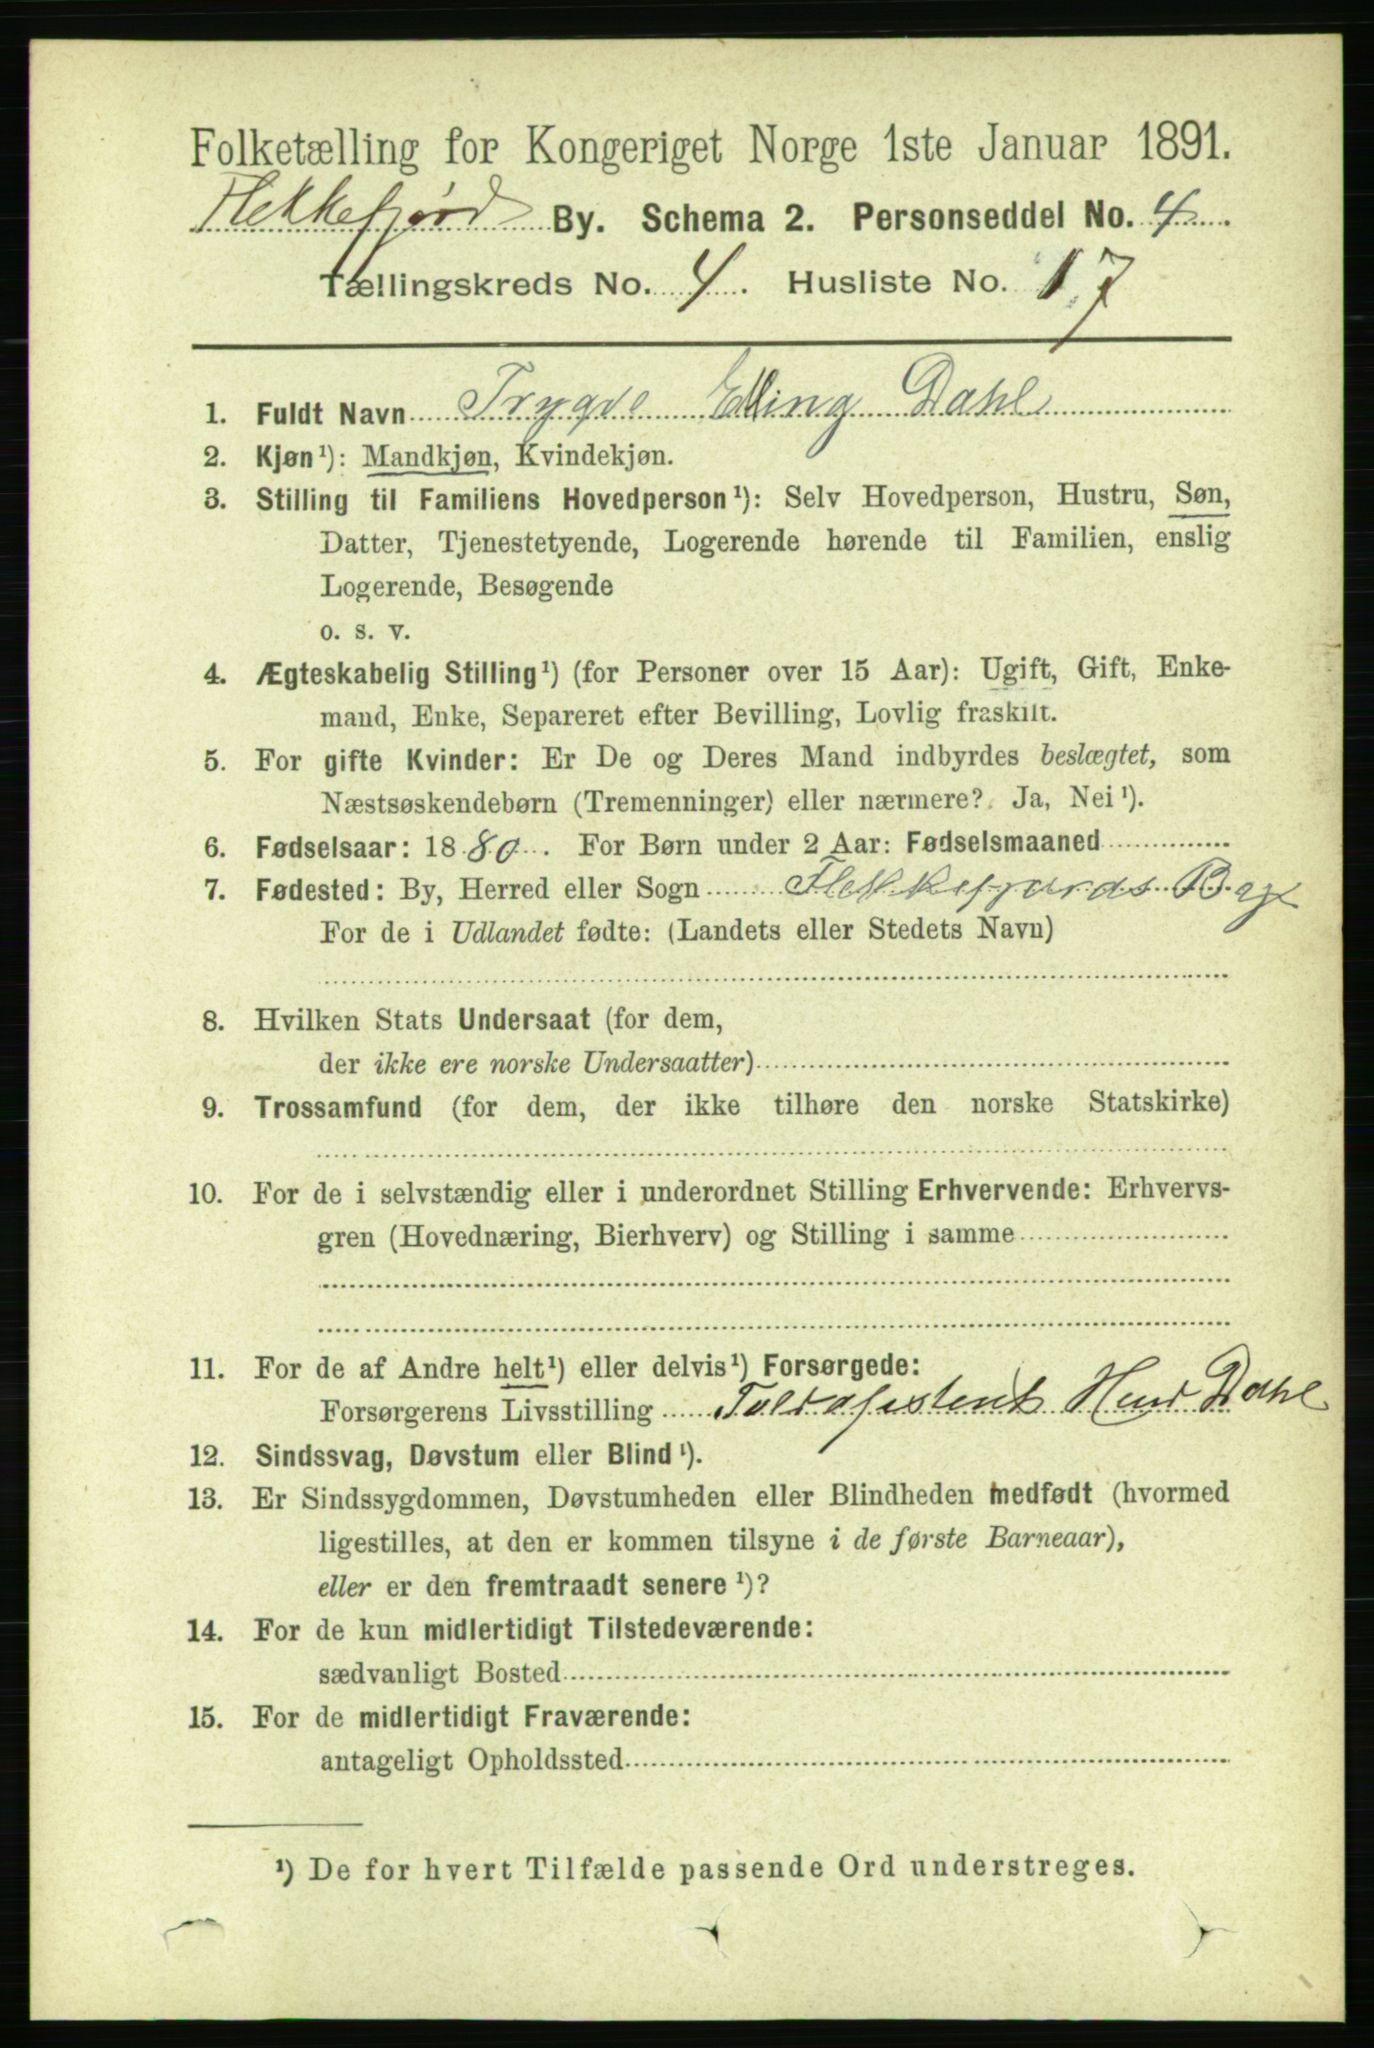 Folketælling for Kongeriget Norge 1ste Januar 1891.
Flekkefjord By. Schema 2. Personseddel No. 4.
Tællingskreds No. 4. Husliste No. 17
1. Fuldt Navn Trygve Elling Dahl
2. Kjøn¹): Mandkjøn, Kvindekjøn.
3. Stilling til Familiens Hovedperson¹): Selv Hovedperson, Hustru, Søn,
Datter, Tjenestetyende, Logerende hørende til Familien, enslig
Logerende, Besøgende
o. s. v.
4. Ægteskabelig Stilling¹) (for Personer over 15 Aar): Ugift, Gift, Enke-
mand, Enke, Separeret efter Bevilling, Lovlig fraskilt.
5. For gifte Kvinder: Er De og Deres Mand indbyrdes beslægtet, som
Næstsøskendebørn (Tremenninger) eller nærmere? Ja, Nei¹).
6. Fødselsaar: 1880. For Børn under 2 Aar: Fødselsmaaned
7. Fødested: By, Herred eller Sogn Flekkefjords By
For de i Udlandet fødte: (Landets eller Stedets Navn)
8. Hvilken Stats Undersaat (for dem,
der ikke ere norske Undersaatter)
9. Trossamfund (for dem, der ikke tilhøre den norske Statskirke)
10. For de i selvstændig eller i underordnet Stilling Erhvervende: Erhvervs-
gren (Hovednæring, Bierhverv) og Stilling i samme
11. For de af Andre helt¹) eller delvis¹) Forsørgede:
Forsørgerens Livsstilling Toldassistent Hend Dahl
12. Sindssvag, Døvstum eller Blind¹).
13. Er Sindssygdommen, Døvstumheden eller Blindheden medfødt (hvormed
ligestilles, at den er kommen tilsyne i de første Barneaar),
eller er den fremtraadt senere¹)?
14. For de kun midlertidigt Tilstedeværende:
sædvanligt Bosted
15. For de midlertidigt Fraværende:
antageligt Opholdssted
¹) De for hvert Tilfælde passende Ord understreges.